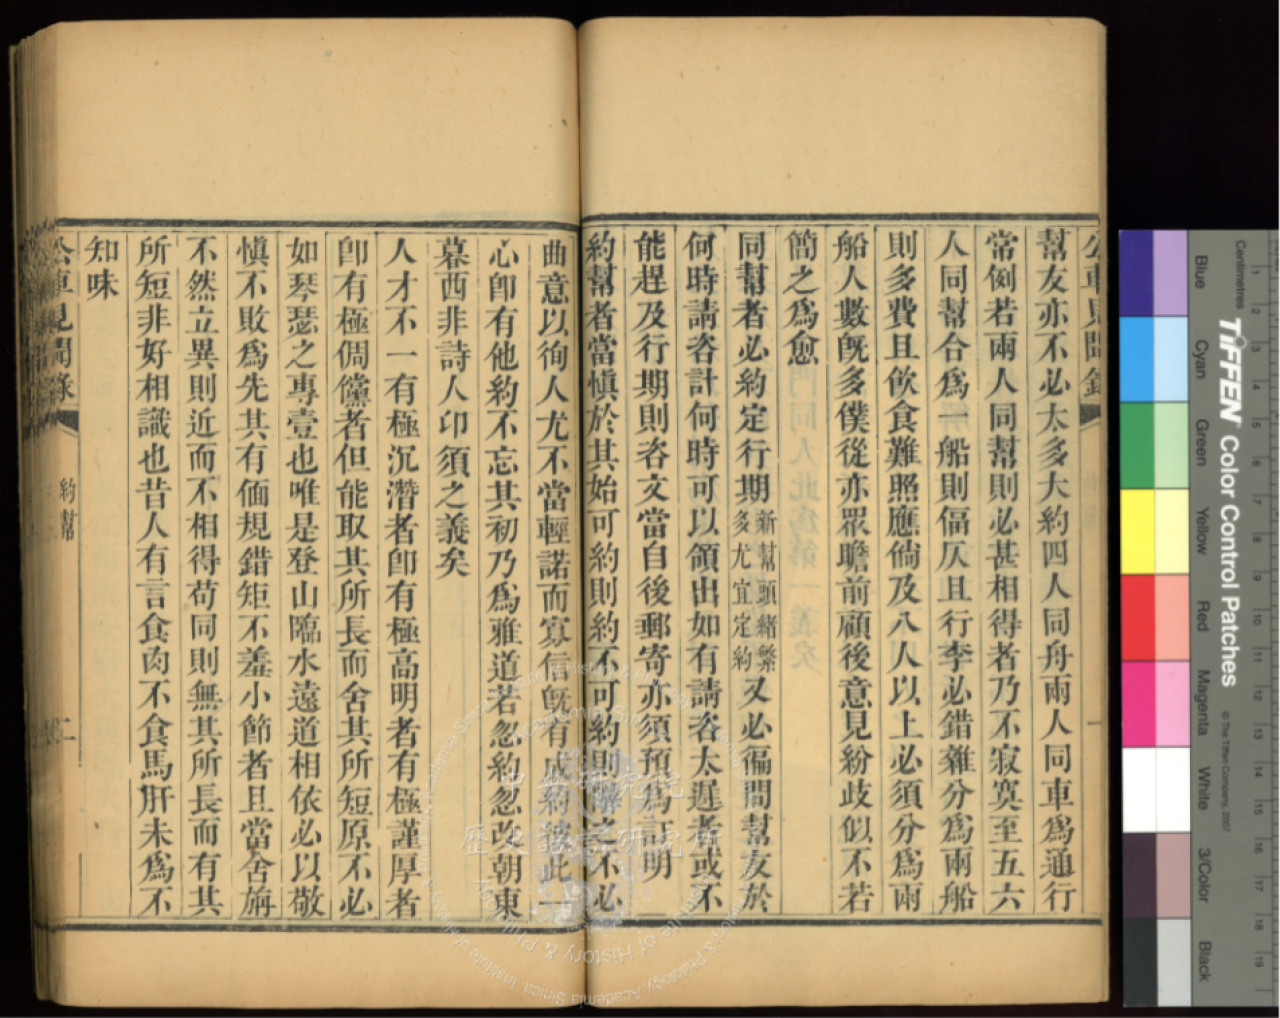 公車見聞錄
幫友亦不必太多大約四人同舟兩人同車為通行
常例若兩人同幫則必甚相得者乃不寂寞至五六
人同幫合為一船則偪仄且行李必錯雜分為兩船
則多費且飲食難照應倘及八人以上必須分為兩
船人數旣多僕從亦眾瞻前顧後意見紛歧似不若
簡之為愈
同幫者必約定行期新幫頭緒繁多尤宜定約又必徧問幫友於
何時請咨計何時可以領出如有請咨太遲者或不
能趕及行期則咨文當自後郵寄亦須預為訂明
約幫者當愼於其始可約則約不可約則辭之不必
曲意以徇人尤不當輕諾而寡信旣有成約彼此一
心卽有他約不忘其初乃為雅道若忽約忽改朝東
暮西非詩人卬須之義矣
人才不一有極沉潛者卽有極高明者有極謹厚者
卽有極倜儻者但能取其所長而舍其所短原不必
如琴瑟之專壹也唯是登山臨水遠道相依必以敬
愼不敗為先其有偭規錯矩不羞小節者且當舍旃
不然立異則近而不相得苟同則無其所長而有其
所短非好相識也昔人有言食肉不食馬肝未為不
知味
公車見聞錄
約幫
二
Centimetres
TIFFEN Color Control Patches
© The Tiffen Company, 2007
Blue
Cyan
Green
Yellow
Red
Magenta
White
3/Color
Black
1 2 3 4 5 6 7 8 9 10 11 12 13 14 15 16 17 18 19